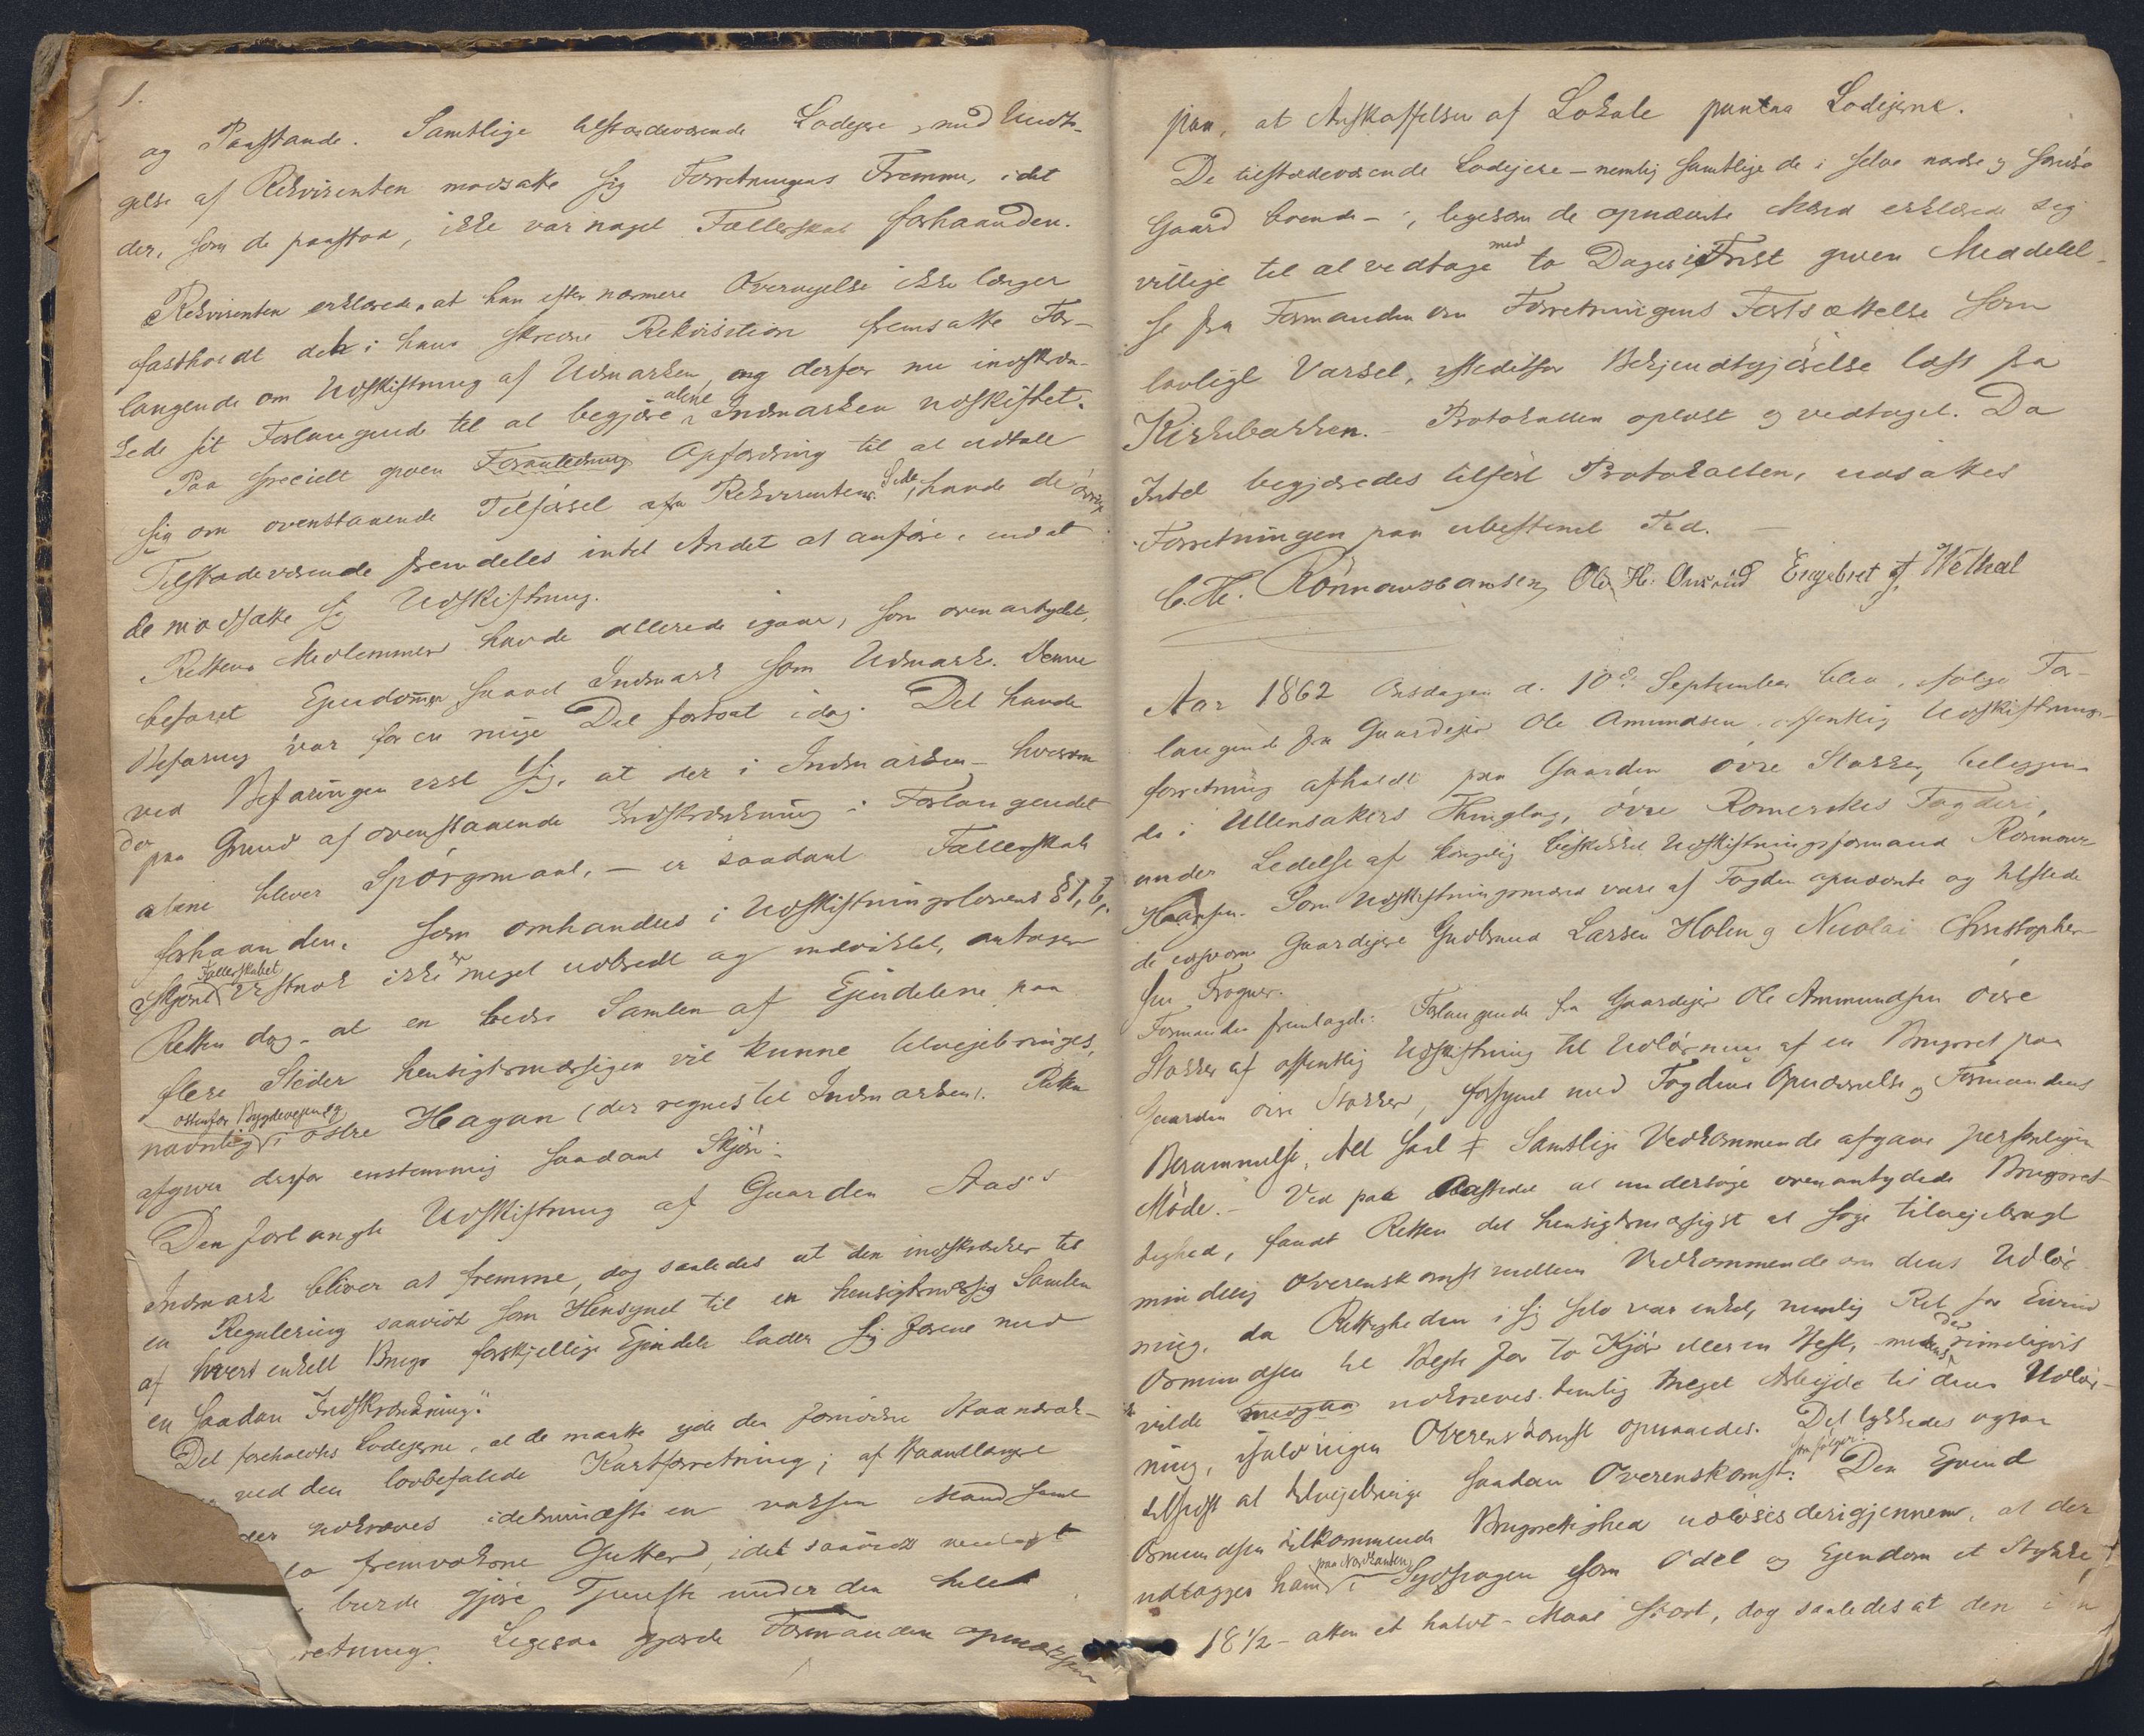 1.
og Paastande. Samtlige tilstædeværende Lodejere, med Undta-
gelse af Rekvirenten modsatte sig Forretningens Fremme, idet
der, som de paastod, ikke var noget Fællesskab forhaanden.
Rekvirenten erklærede, at han efter nærmere Overveielse ikke længer
fastholdt det i hans skrevne Rekvisition fremsatte For-
langende om Udskiftning af Udmarken, og derfor nu indskræn-
kede sit Forlangende til at begjære alene Indmarken udskiftet.
Paa specielt given Foranledning Opfordring til at udtale
sig om ovenstaaende Tilførsel fra Rekvirentens Side, havde de øvrige
Tilstædeværende fremdeles intet Andet at anføre, end at
de modsatte sig Udskiftning.
Rettens Medlemmer havde allerede igaar, som oven antydet,
befaret Ejendommen saavel Indmark som Udmark. Denne
Befaring var for en Deel fortsat idag. Det havde
ved Befaringen vist sig, at der i Indmarken – hvorom
der paa Grund af ovenstaaende Indskrænkning i Forlangendet
alene bliver Spørgsmaal, – er saadant Fællesskab
forhaanden, som omhandles i Udskiftningslovens § 1,
Skjønt Fællesskabet vistnok ikke er meget udbredt og indviklet, antager
Retten dog, at en bedre Samlen af Ejendelene paa
flere Steder hensigtsmæssigen vil kunne tilvejebringes,
navnlig ostenfor Bygdevejen og i østre Hagan (der regnes til Indmarken). Retten
afgiver derfor enstemmig saadant Skjøn:
Den forlangte Udskiftning af Gaarden Aas's
Indmark bliver at fremme, dog saaledes at den indskrænkes til
en Regulering saavidt som Hensynet til en hensigtsmæssig Samlen
af hvert enkelt Brugs forskjellige Ejendele lader sig forene med
en saadan Indskrænkning."
Det foreholdtes Lodejerne, at de maatte yde den fornødne Haandræk-
ved den lovbefalede Kartforretning; af Haandlangere
der udkræves idetmindste en voksen Mand samt
to fremvoksne Gutter, idet saavidt muligt
burde gjøre Tjeneste under den hele
retning. Ligesaa gjorde Formanden opmærksom
paa, at Anskaffelsen af Lokale paalaa Lodejerne.
De tilstædeværende Lodejere – nemlig samtlige de i selve nedre og
Gaard boende –, ligesom de opnævnte Mænd erklærede sig
villige til at vedtage med to Dages Frist given Meddelel-
se fra Formanden om Forretningens Fortsættelse som
lovligt Varsel, istedetfor Bekjendtgjørelse læst fra
Kirkebakken. – Protokollen oplæst og vedtaget. Da
Intet begjæredes tilført Protokollen, udsattes
Forretningen paa ubestemt Tid. –
C. H. Rönnaug Hansen Ole H. Onsrud Engebret J. Wethal
Aar 1862 Onsdagen d. 10de September blev ifølge For-
langende fra Gaardejer Ole Amundsen offentlig Udskiftnings-
forretning afholdt paa Gaarden øvre Stokker, beliggen-
de i Ullensakers Thinglag, øvre Romerikes Fogderi,
under Ledelse af kongelig beskikket Udskiftningsformand Rönnaug
Hansen. Som Udskiftningsmænd vare af Fogden opnævnte og tilstede
de edsvorne Gaardejere Gudbrand Larsen Holen og Nicolai Christopher-
sen Frogner.
Formanden fremlagde: Forlangende fra Gaardejer Ole Ammundsen øvre
Stokker af offentlig Udskiftning til Udløsning af en Brugsret paa
Gaarden øvre Stokker, forsynet med Fogdens Opnævnelse og Formandens
Berammelse, Alt saal. Samtlige Vedkommende afgave personligen
Møde. – Ved paa Aastedet at undersøge ovenantydede Brugsret-
tighed, fandt Retten det hensigtsmæssigst at søge tilvejebragt
mindelig Overenskomst mellem Vedkommende om dens Udløs-
ning, da Rettigheden i sig selv var enkel, nemlig Ret for Eivind
Osmundsen til Beite for to Kjør eller en Hest, mens der rimeligvis
vilde udkræves temlig meget Arbejde til dens Udløs-
ning, ifald ingen Overenskomst opnaaedes. Det lykkedes ogsaa
tilsidst at tilvejebringe saadan Overenskomst som følger: Den Ejvind
Osmundsen tilkommende Brugsrettighed udløses derigjennem, at der
udlægges ham paa Nordkanten i Sydhagen som Odel og Ejendom et Stykke,
18 1/2 – atten et halvt – Maal stort, dog saaledes at den